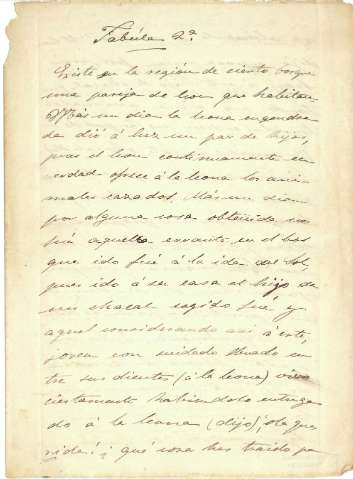 Fabúla 2ª
Existe en la región de cierto bosque
una pareja de leon que habitan
Más un dia la leona engendra
da dió á luz un par de hijos,
pues el leon continuamente en
verdad ofrece á la leona los ani
males cazados. Más un dia
por alguna cosa obtenida no
fué aquella errante en el bos
que ido fué á la ida del Sol,
pues ido á su casa el hijo de
un chacal cogido fué y
aquel considerando asi á este,
joven con cuidado llevado en
tre sus dientes (á la leona) vivo
ciertamente habiendolo entrega
do á la leona (dijo) ¡Oh que
rida! ¿qué cosa has traido pa